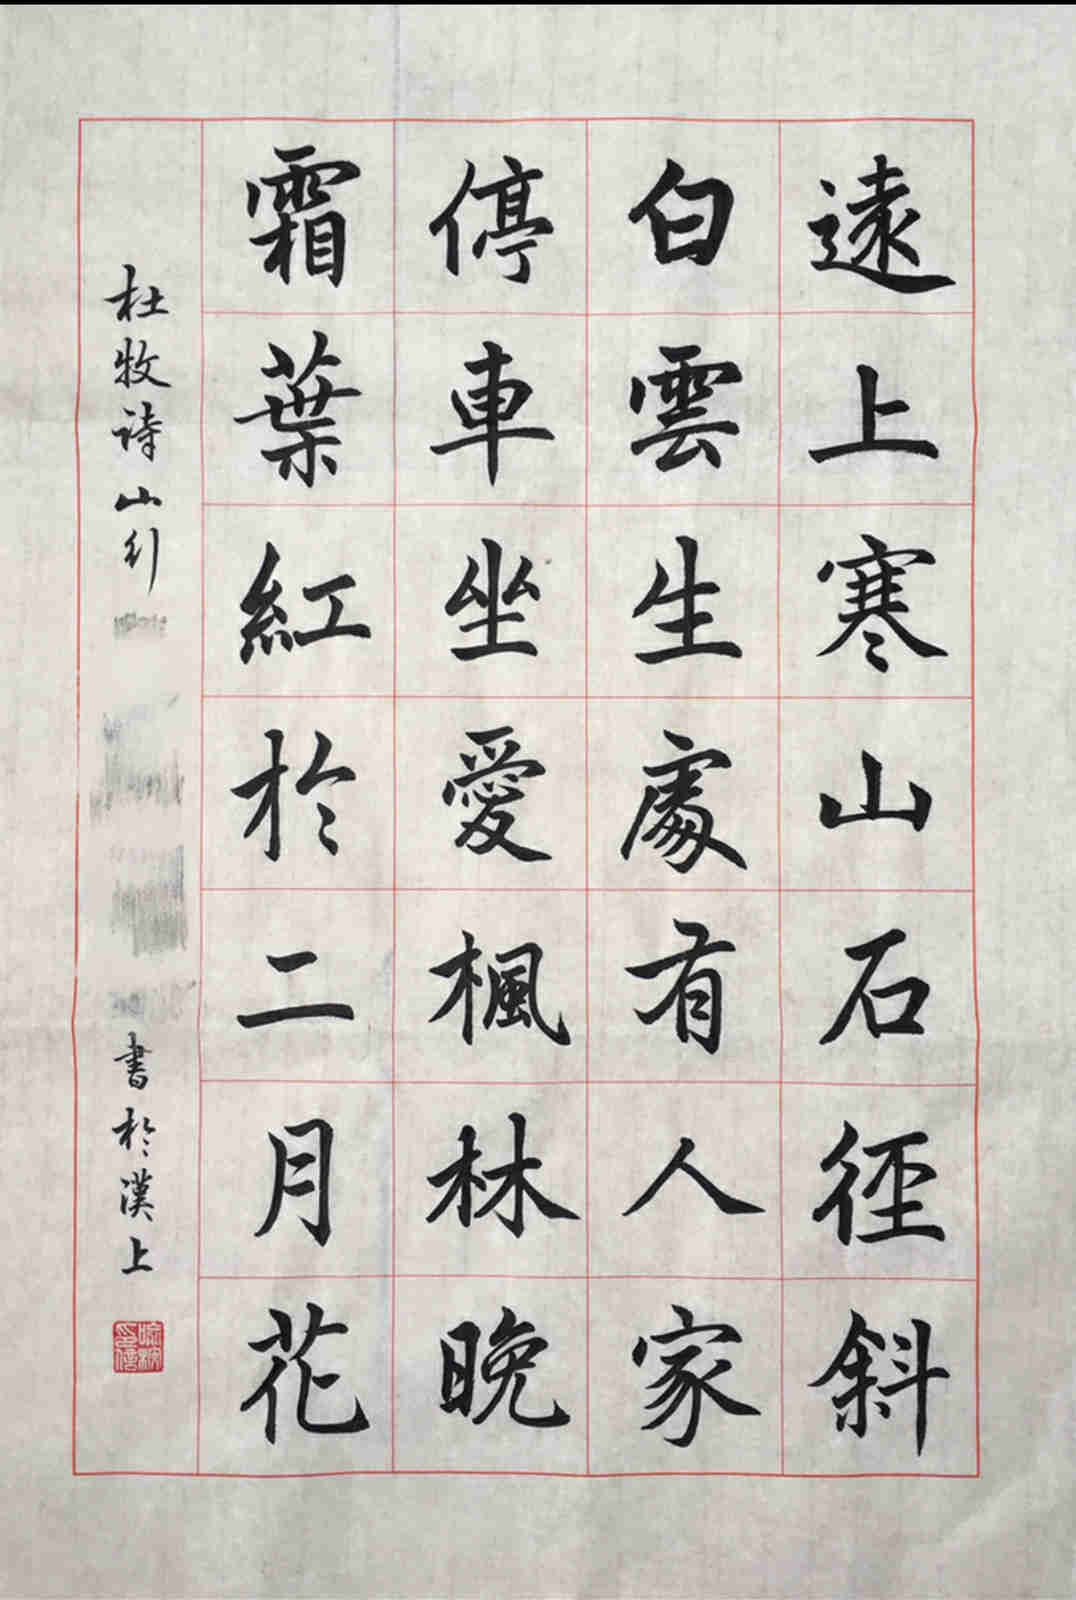 遠上寒山石徑斜
白雲生處有人家
停車坐愛楓林晚
霜葉紅於二月花
杜牧詩山行
書於漢上